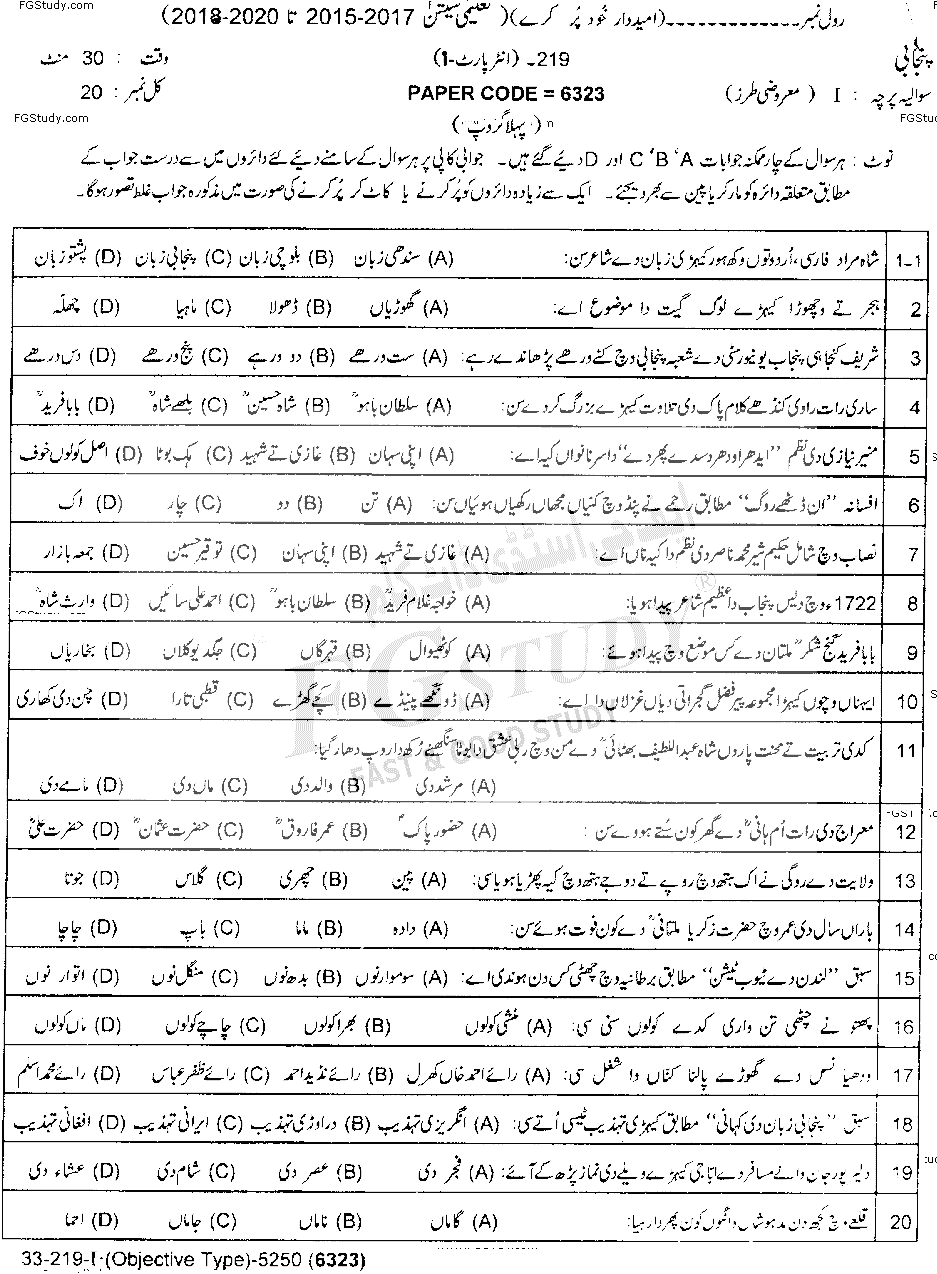 FGStudy.com
رولی نمبر ۔۔۔۔۔۔۔۔۔۔۔۔۔(امیددار خود پُر کرے)( تعلیمی سیشن 2017-2015 تا 2020-2018)
پنجابی
219۔ (انٹرپارٹ-I)
وقت : 30 منٹ
سوالیہ پرچہ : I ( معروضی طرز)
PAPER CODE = 6323
کل نمبر : 20
FGStudy.com
FGStu
(پہلا گروپ)
نوٹ : ہر سوال کے چار ممکنہ جوابات A‘ B‘ C اور D دیئے گئے ہیں۔ جوابی کاپی پر ہر سوال کے سامنے دیئے گئے دائروں میں سے درست جواب کے
مطابق متعلقہ دائرہ کو مارکر یا پین سے بھر دیجئے۔ ایک سے زیادہ دائروں کو پُر کرنے یا کاٹ کر پُر کرنے کی صورت میں مذکورہ جواب غلط تصور ہوگا۔
1-1 شاہ مراد فارسی، اُردو توں وکھ ہور کیہڑی زبان دے شاعر سن: (A) سندھی زبان (B) بلوچی زبان (C) پنجابی زبان (D) پشتو زبان
2 ہجر تے وچھوڑا کیہڑے لوک گیت دا موضوع اے: (A) گھوڑیاں (B) ڈھولا (C) ماہیا (D) چھلّہ
3 شریف کنجاہی پنجاب یونیورسٹی دے شعبہ پنجابی وچ کنے ورھے پڑھاندے رہے: (A) ست ورھے (B) دو ورہے (C) پنج ورھے (D) دس ورھے
4 ساری رات راوی کنڈھے کلام پاک دی تلاوت کیہڑے بزرگ کردے سن: (A) سلطان باہوؒ (B) شاہ حسینؒ (C) بلھے شاہؒ (D) بابا فریدؒ
5 منیر نیازی دی نظم ’’ایدھر اودھر دسدے پھردے‘‘ دا سرناواں کیہ اے: (A) اپنی سہان (B) غازی تے شہید (C) ہک بوٹا (D) اصل کولوں خوف
6 افسانہ ’’ان ڈٹھے روگ‘‘ مطابق رحمے نے پنڈ وچ کنیاں مجھاں رکھیاں ہوئیاں سن: (A) تن (B) دو (C) چار (D) اک
7 نصاب وچ شامل حکیم شیر محمد ناصر دی نظم دا کیہ ناں اے: (A) غازی تے شہید (B) اپنی سہان (C) توقیر حسین (D) جمعہ بازار
8 1722ء وچ دیس پنجاب دا عظیم شاعر پیدا ہویا: (A) خواجہ غلام فریدؒ (B) سلطان باہوؒ (C) احمد علی سائیں (D) وارث شاہؒ
9 بابا فرید گنج شکرؒ ملتان دے کس موضع وچ پیدا ہوئے: (A) کوٹھیوال (B) قہرگاں (C) جگدیو کلاں (D) بخاریاں
10 ایہناں وچوں کیہڑا مجموعہ پیر فضل گجراتی دیاں غزلاں دا اے: (A) ڈونگھے پینڈے (B) کچے گھڑے (C) قطبی تارا (D) چن دی کھاری
11 کدی تربیت تے محنت پاروں شاہ عبداللطیف بھٹائیؒ دے من وچ ربی عشق دا بوٹا سنگھنے رُکھ دا روپ دھار گیا:
(A) مرشد دی (B) والد دی (C) ماں دی (D) مامے دی
12 معراج دی رات اُم ہانیؓ دے گھر کون ستے ہووے سن: (A) حضور پاکؐ (B) عمر فاروقؓ (C) حضرت عثمانؓ (D) حضرت علیؓ
13 ولایت دے روگی نے اک ہتھ وچ روپے تے دوجے ہتھ وچ کیہ پھڑیا ہویا سی: (A) پین (B) چھری (C) گلاس (D) جوتا
14 باراں سال دی عمر وچ حضرت زکریا ملتانیؒ دے کون فوت ہوئے سن: (A) دادہ (B) ماما (C) باپ (D) چاچا
15 سبق ’’لندن دے ٹیوب ٹیشن‘‘ مطابق برطانیہ وچ چھٹی کس دن ہوندی اے: (A) سوموار نوں (B) بدھ نوں (C) منگل نوں (D) اتوار نوں
16 پھتو نے چٹھی تن واری کدے کولوں سنی سی: (A) منشی کولوں (B) بھرا کولوں (C) چاچے کولوں (D) ماں کولوں
17 ودھیا نسل دے گھوڑے پالنا کناں دا شغل سی: (A) رائے احمد خاں کھرل (B) رائے نذیر احمد (C) رائے ظفر عباس (D) رائے محمد اسلم
18 سبق ’’پنجابی زبان دی کہانی‘‘ مطابق کیہڑی تہذیب ٹیسی اُتے سی: (A) انگریزی تہذیب (B) دراوڑی تہذیب (C) ایرانی تہذیب (D) افغانی تہذیب
19 دلیر پور جان والے مسافر دے اباجی کیہڑے ویلے دی نماز پڑھ کے آئے: (A) فجر دی (B) عصر دی (C) شام دی (D) عشاء دی
20 قلعے وچ کجھ دن مدہوشاں دانموں کون پھردا رہیا: (A) گاماں (B) ناماں (C) جاماں (D) احما
ایف جی اسٹڈی ڈاٹ کام
FGSTUDY ®
FAST & GOOD STUDY
33-219-I-(Objective Type)-5250 (6323)